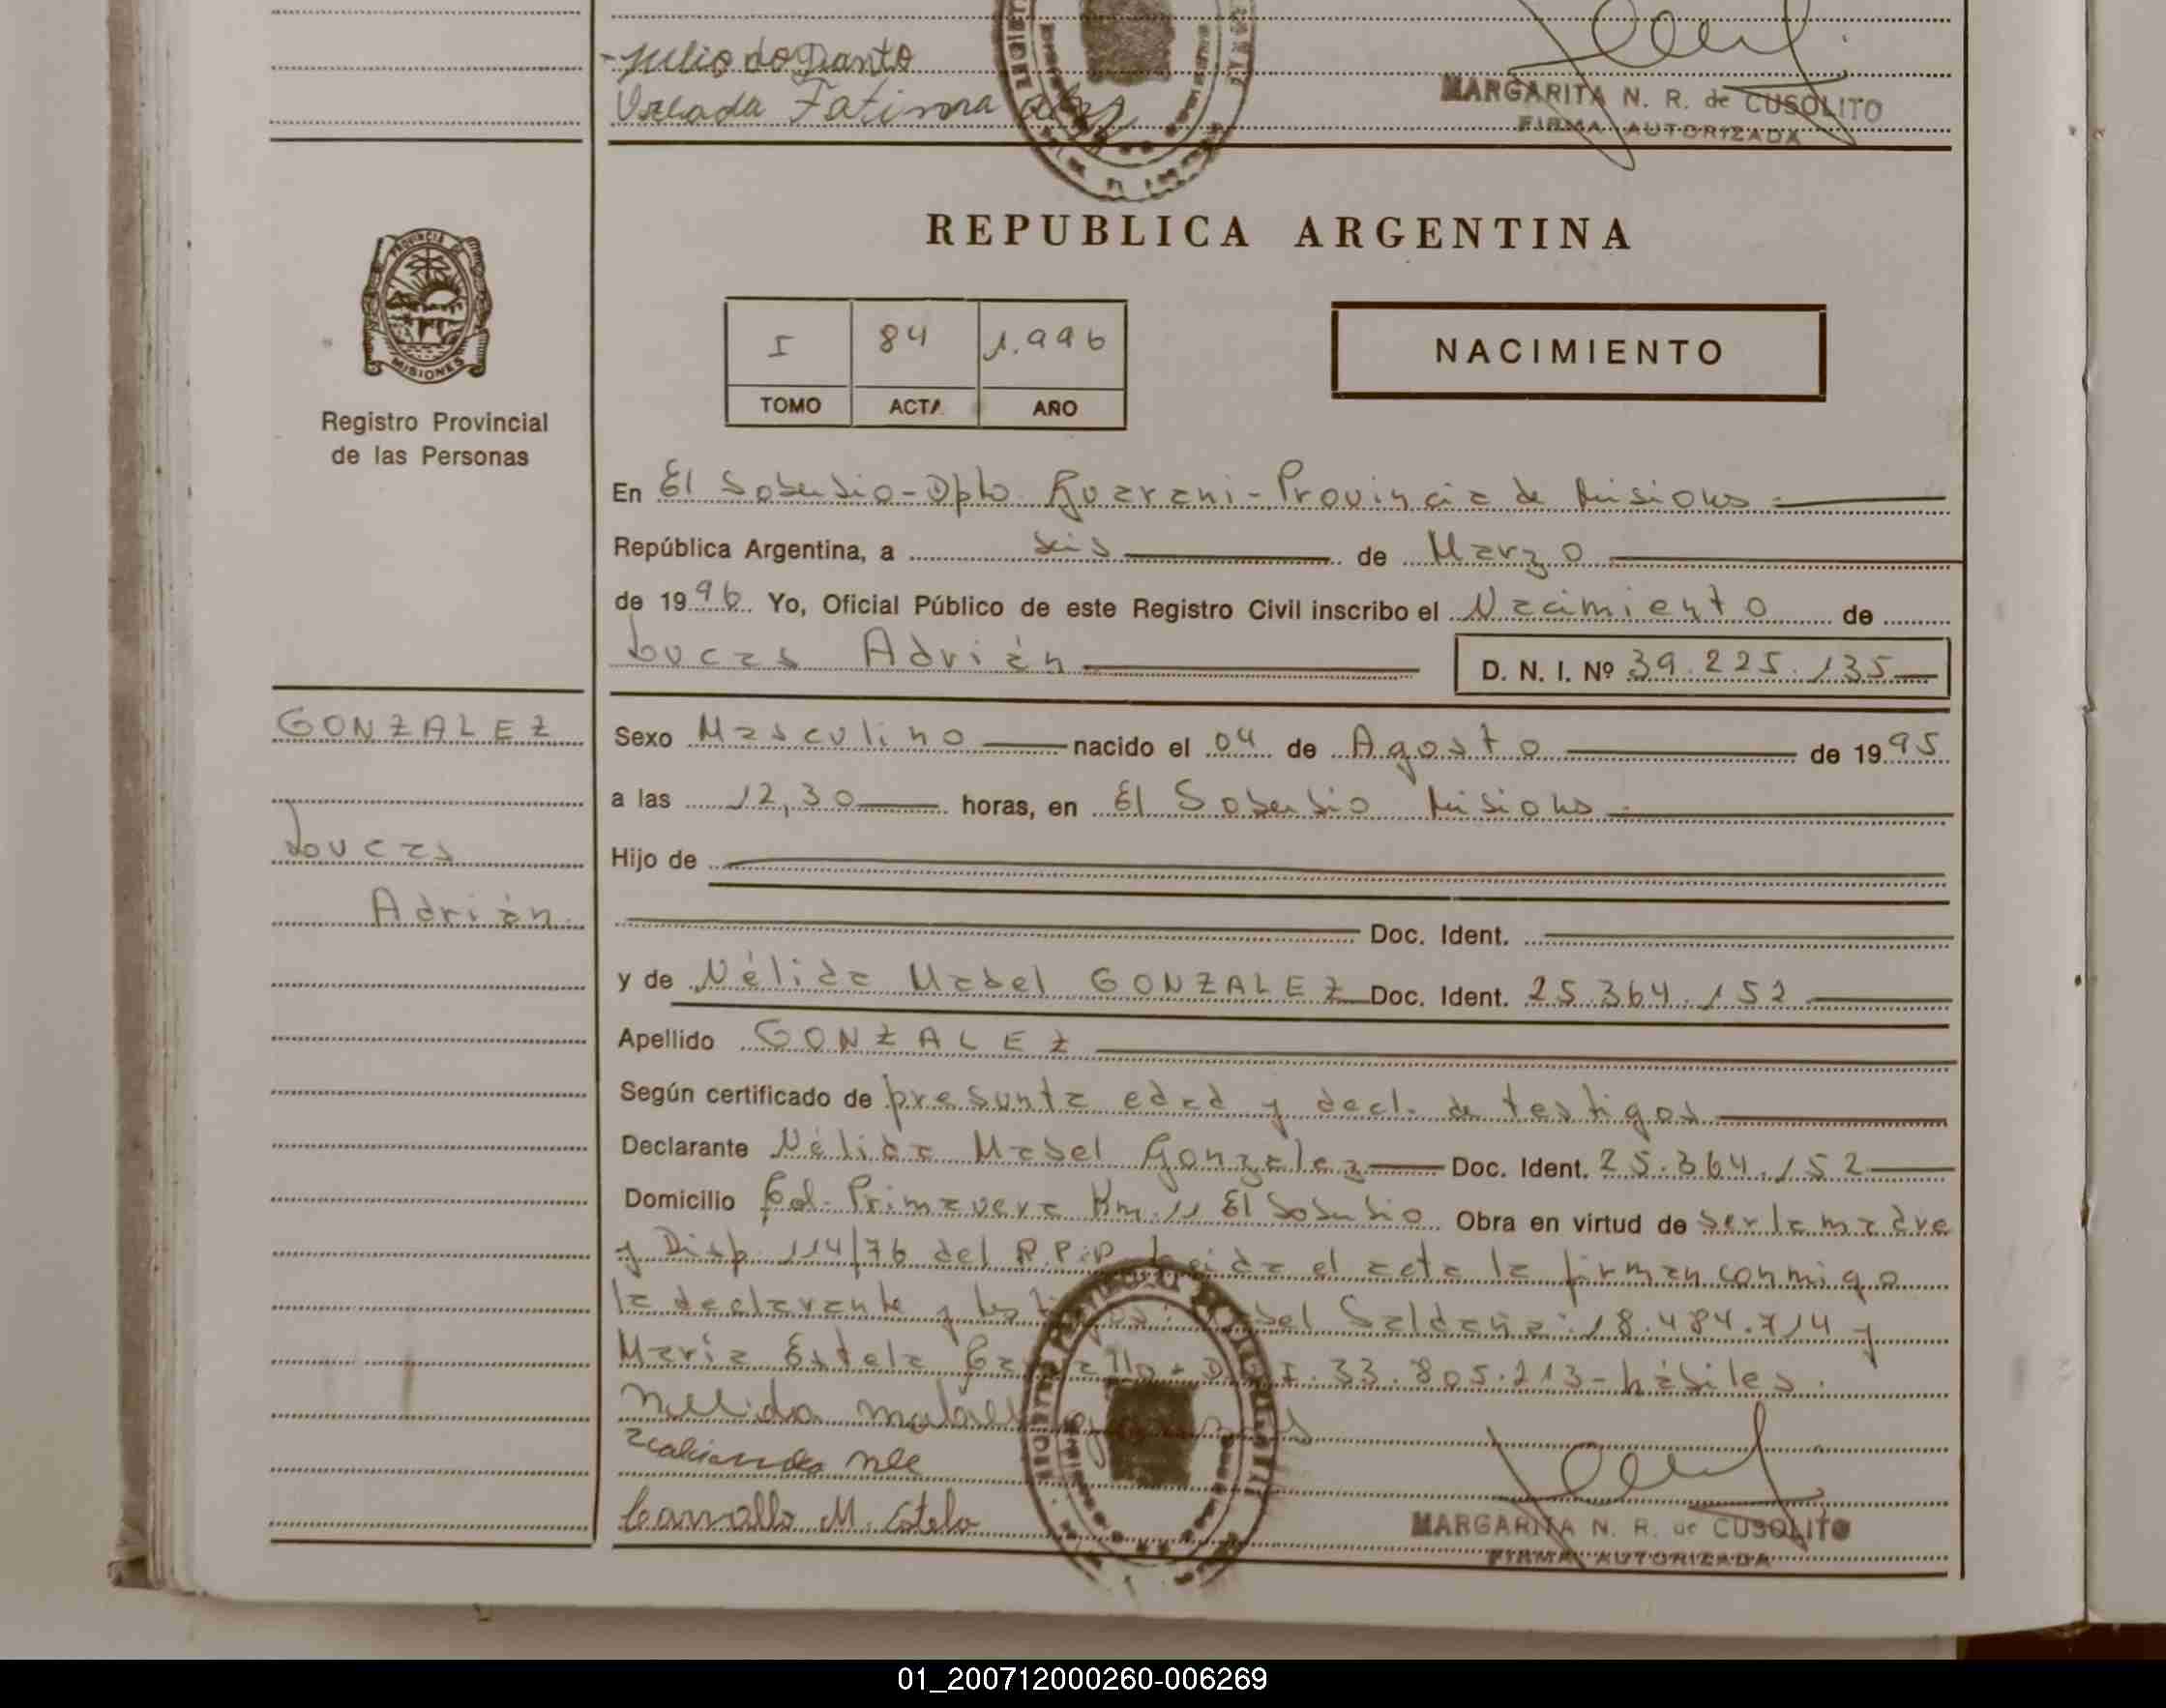 -Julio do Santo
Fatima
MARGARITA N. R. de CUSOLITO
FIRMA AUTORIZADA
REPUBLICA ARGENTINA
PROVINCIA DE
MISIONES
Registro Provincial
de las Personas
I 84 1.996
TOMO ACTA AÑO
NACIMIENTO
En El Soberbio-Dpto Guarani-Provincia de Misiones
República Argentina, a seis de Marzo
de 1996 Yo, Oficial Público de este Registro Civil inscribo el Nacimiento de
Lucas Adrián
D. N. I. Nº 39.225.135
GONZALEZ
Lucas
Adrián
Sexo Masculino nacido el 04 de Agosto de 1995
a las 12,30 horas, en El Soberbio Misiones
Hijo de
Doc. Ident.
y de Nélida Mabel GONZALEZ Doc. Ident. 25.364.152
Apellido GONZALEZ
Según certificado de presunta edad y decl. de testigos
Declarante Nélida Mabel González Doc. Ident. 25.364.152
Domicilio Col. Primavera Km.11 El Soberbio Obra en virtud de ser la madre
y Disp. 114/76 del R.P.P. Leida el acta la firman conmigo
la declarante y testigos: Saldaña: 18.484.714 y
Maria Estela Carvallo- D.N.I. 33.805.213-hábiles.
Nelida
Carvallo M. Estela
MARGARITA N. R. de CUSOLITO
FIRMA AUTORIZADA
01_200712000260-006269